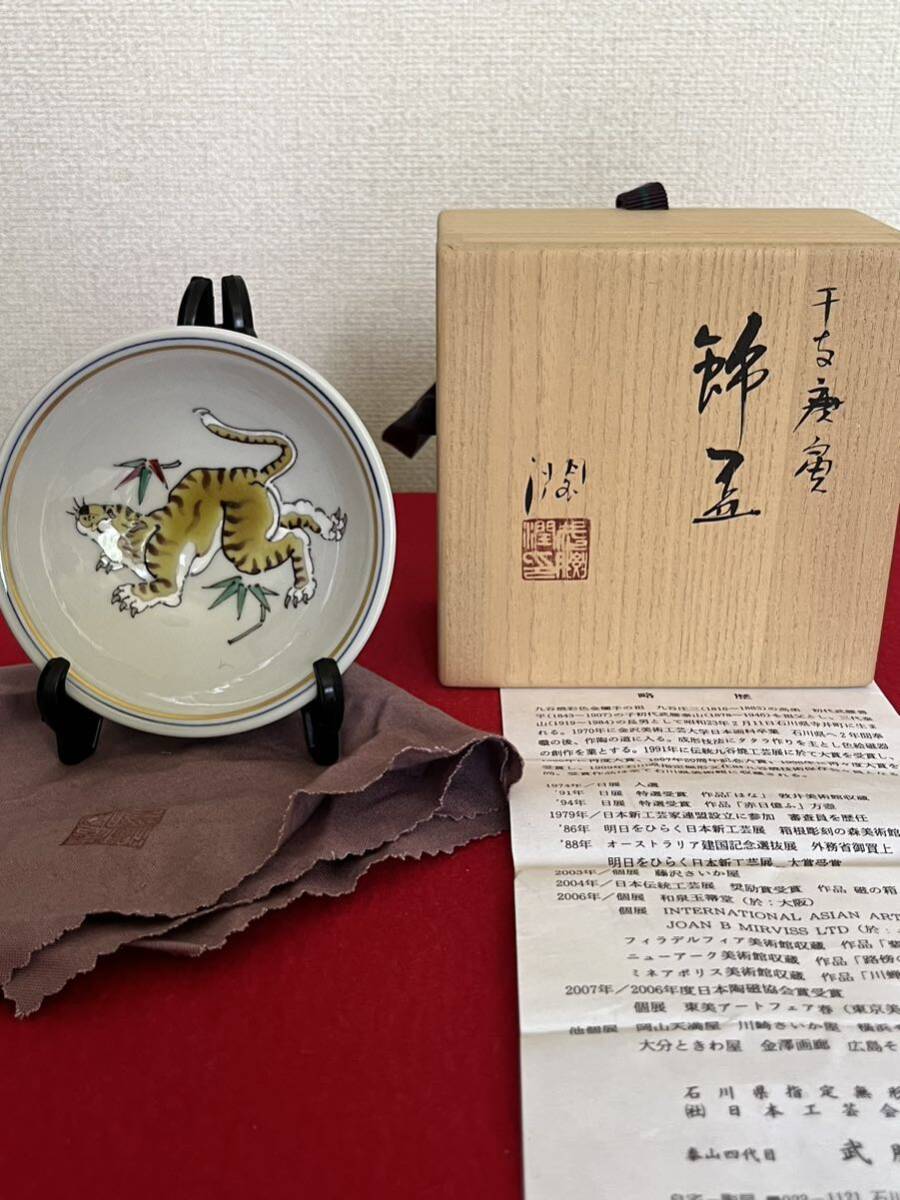 干支庚寅
飾盃
潤
武腰
潤印
略 歴
九谷焼彩色金襴手の祖 九谷庄三(1816〜1883)の高弟 初代武腰善
平(1843〜1907)の子初代武腰泰山(1878〜1946)を祖父とし、三代泰
山(1919〜1984)の長男として昭和23年2月11日石川県寺井町に生ま
れる。1970年に金沢美術工芸大学日本画科卒業 石川県へ2年間奉
職の後、作陶の道に入る。成形技法にタタラ作りを主とし色絵磁器
の創作を業とする。1991年に伝統九谷焼工芸展に於て大賞を受賞し、
1974年/日展 入選
'91年 日展 特選受賞 作品「はな」 敦井美術館収蔵
'94年 日展 特選受賞 作品「赤日億ふ」方壺
1979年/日本新工芸家連盟設立に参加 審査員を歴任
'86年 明日をひらく日本新工芸展 箱根彫刻の森美術館
'88年 オーストラリア建国記念選抜展 外務省御買上
明日をひらく日本新工芸展 大賞受賞
2003年/個展 藤沢さいか屋
2004年/日本伝統工芸展 奨励賞受賞 作品 磁の箱
2006年/個展 和泉玉箒堂(於:大阪)
個展 INTERNATIONAL ASIAN ART
JOAN B MIRVISS LTD(於:
フィラデルフィア美術館収蔵 作品「
ニューアーク美術館収蔵 作品「路傍の
ミネアポリス美術館収蔵 作品「川蟬
2007年/2006年度日本陶磁協会賞受賞
個展 東美アートフェア春(東京美
他個展 岡山天満屋 川崎さいか屋 横浜
大分ときわ屋 金澤画廊 広島そ
石川県指定無形
㈳日本工芸会
泰山四代目 武腰